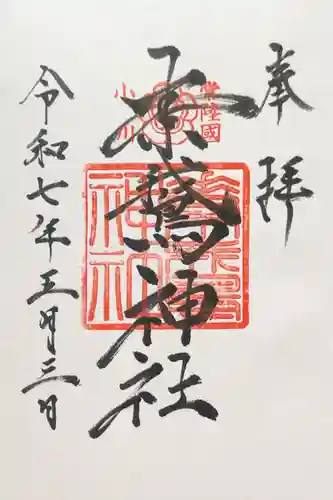 奉拝
常陸國
小川
素鵞神社
素鵞
神社
令和七年五月三日